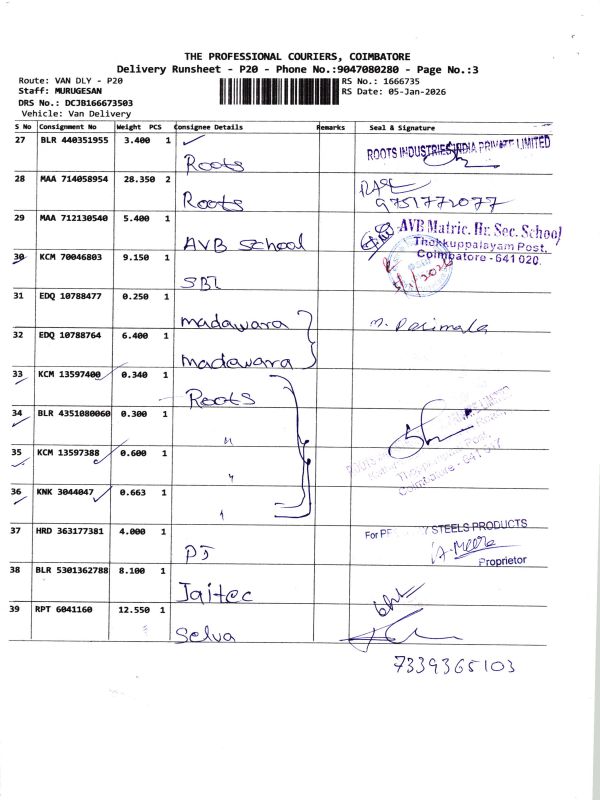 THE PROFESSIONAL COURIERS, COIMBATORE
Delivery Runsheet - P20 - Phone No.:9047080280 - Page No.:3
Route: VAN DLY - P20
RS No.: 1666735
Staff: MURUGESAN
RS Date: 05-Jan-2026
DRS No.: DCJB166673503
Vehicle: Van Delivery
S No Consignment No Weight PCS Consignee Details Remarks Seal & Signature
27 BLR 440351955 3.400 1
ROOTS INDUSTRIES INDIA PRIVATE LIMITED
Roots
28 MAA 714058954 28.350 2
Roots
9751772077
29 MAA 712130540 5.400 1
AVB School
AVB Matric. Hr. Sec. School
Thekkuppalayam Post,
Coimbatore - 641 020.
30 KCM 70046803 9.150 1
SBI
5/1/2026
31 EDQ 10788477 0.250 1
madawara
M. Parimala
32 EDQ 10788764 6.400 1
madawara
33 KCM 13597400 0.340 1
Roots
34 BLR 4351080060 0.300 1
"
35 KCM 13597388 0.600 1
"
ROOTS
Coimbatore - 641
36 KNK 3044047 0.663 1
"
37 HRD 363177381 4.000 1
PJ
For STEELS PRODUCTS
Proprietor
38 BLR 5301362788 8.100 1
Jaitec
39 RPT 6041160 12.550 1
Selva
7339365103